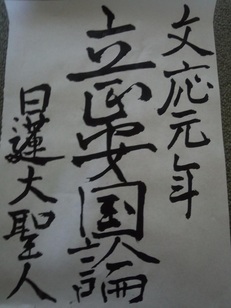 文応元年
立正安国論
日蓮大聖人